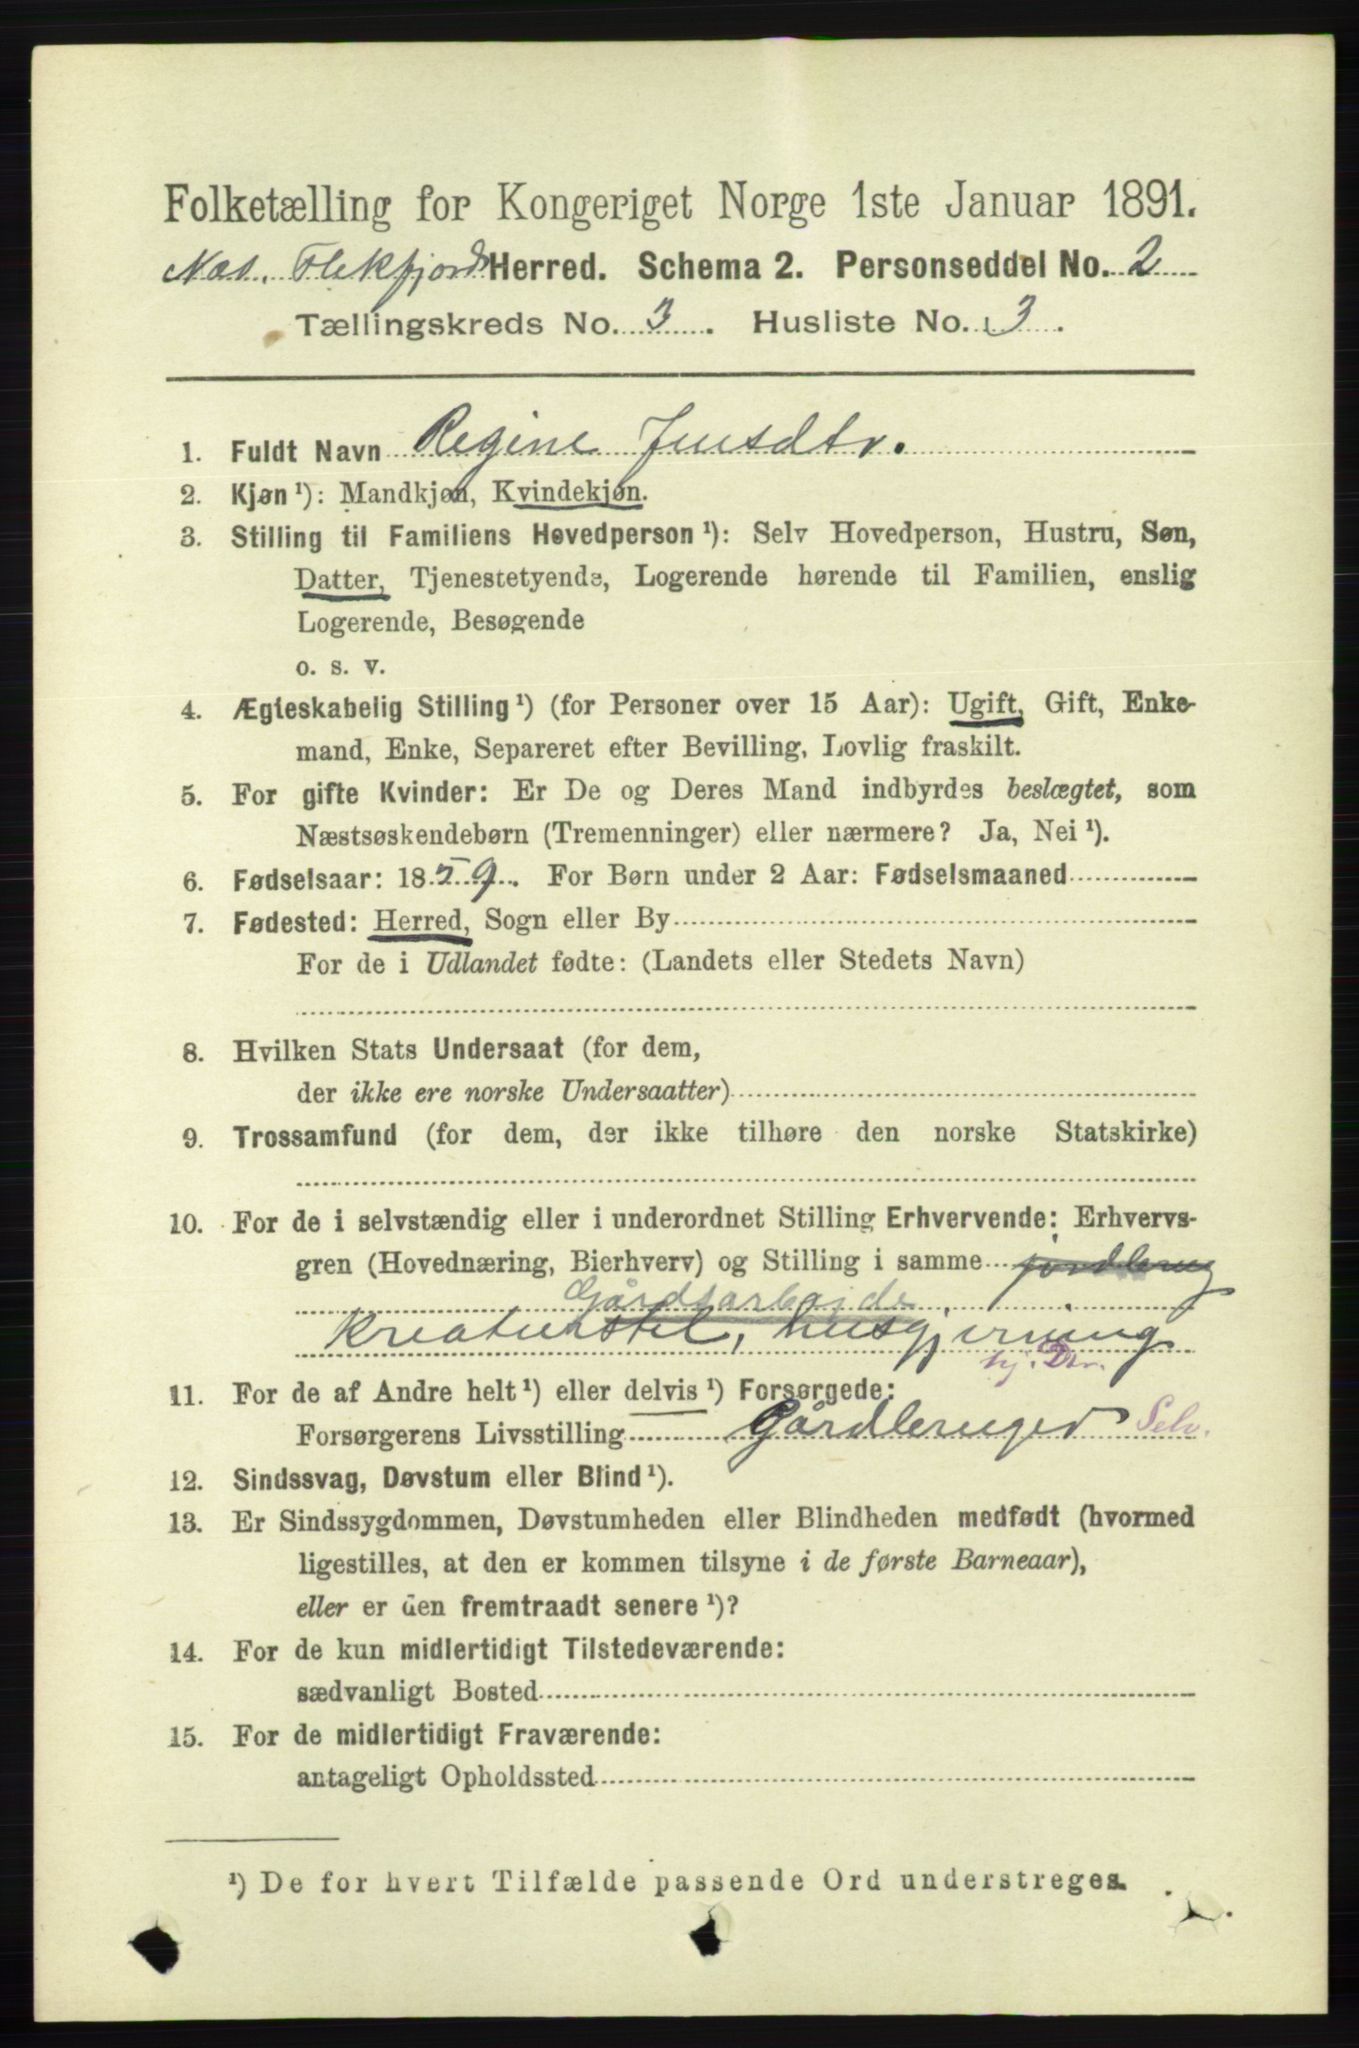 Folketælling for Kongeriget Norge 1ste Januar 1891.
Næs, Flekkefjords Herred. Schema 2. Personseddel No. 2
Tællingskreds No. 3. Husliste No. 3.
1. Fuldt Navn Regine Jensdtr.
2. Kjøn ¹): Mandkjøn, Kvindekjøn.
3. Stilling til Familiens Hovedperson ¹): Selv Hovedperson, Hustru, Søn,
Datter, Tjenestetyende, Logerende hørende til Familien, enslig
Logerende, Besøgende
o. s. v.
4. Ægteskabelig Stilling ¹) (for Personer over 15 Aar): Ugift, Gift, Enke-
mand, Enke, Separeret efter Bevilling, Lovlig fraskilt.
5. For gifte Kvinder: Er De og Deres Mand indbyrdes beslægtet, som
Næstsøskendebørn (Tremenninger) eller nærmere? Ja, Nei ¹).
6. Fødselsaar: 1859. For Børn under 2 Aar: Fødselsmaaned
7. Fødested: Herred, Sogn eller By
For de i Udlandet fødte: (Landets eller Stedets Navn)
8. Hvilken Stats Undersaat (for dem,
der ikke ere norske Undersaatter)
9. Trossamfund (for dem, der ikke tilhøre den norske Statskirke)
10. For de i selvstændig eller i underordnet Stilling Erhvervende: Erhvervs-
gren (Hovednæring, Bierhverv) og Stilling i samme jordbrug
Gårdsarbeide
Kreaturstel, husgjerning
hj. Dtr.
11. For de af Andre helt ¹) eller delvis ¹) Forsørgede:
Forsørgerens Livsstilling Gårdbruger Selv.
12. Sindssvag, Døvstum eller Blind ¹).
13. Er Sindssygdommen, Døvstumheden eller Blindheden medfødt (hvormed
ligestilles, at den er kommen tilsyne i de første Barneaar),
eller er den fremtraadt senere ¹)?
14. For de kun midlertidigt Tilstedeværende:
sædvanligt Bosted
15. For de midlertidigt Fraværende:
antageligt Opholdssted
¹) De for hvert Tilfælde passende Ord understreges.